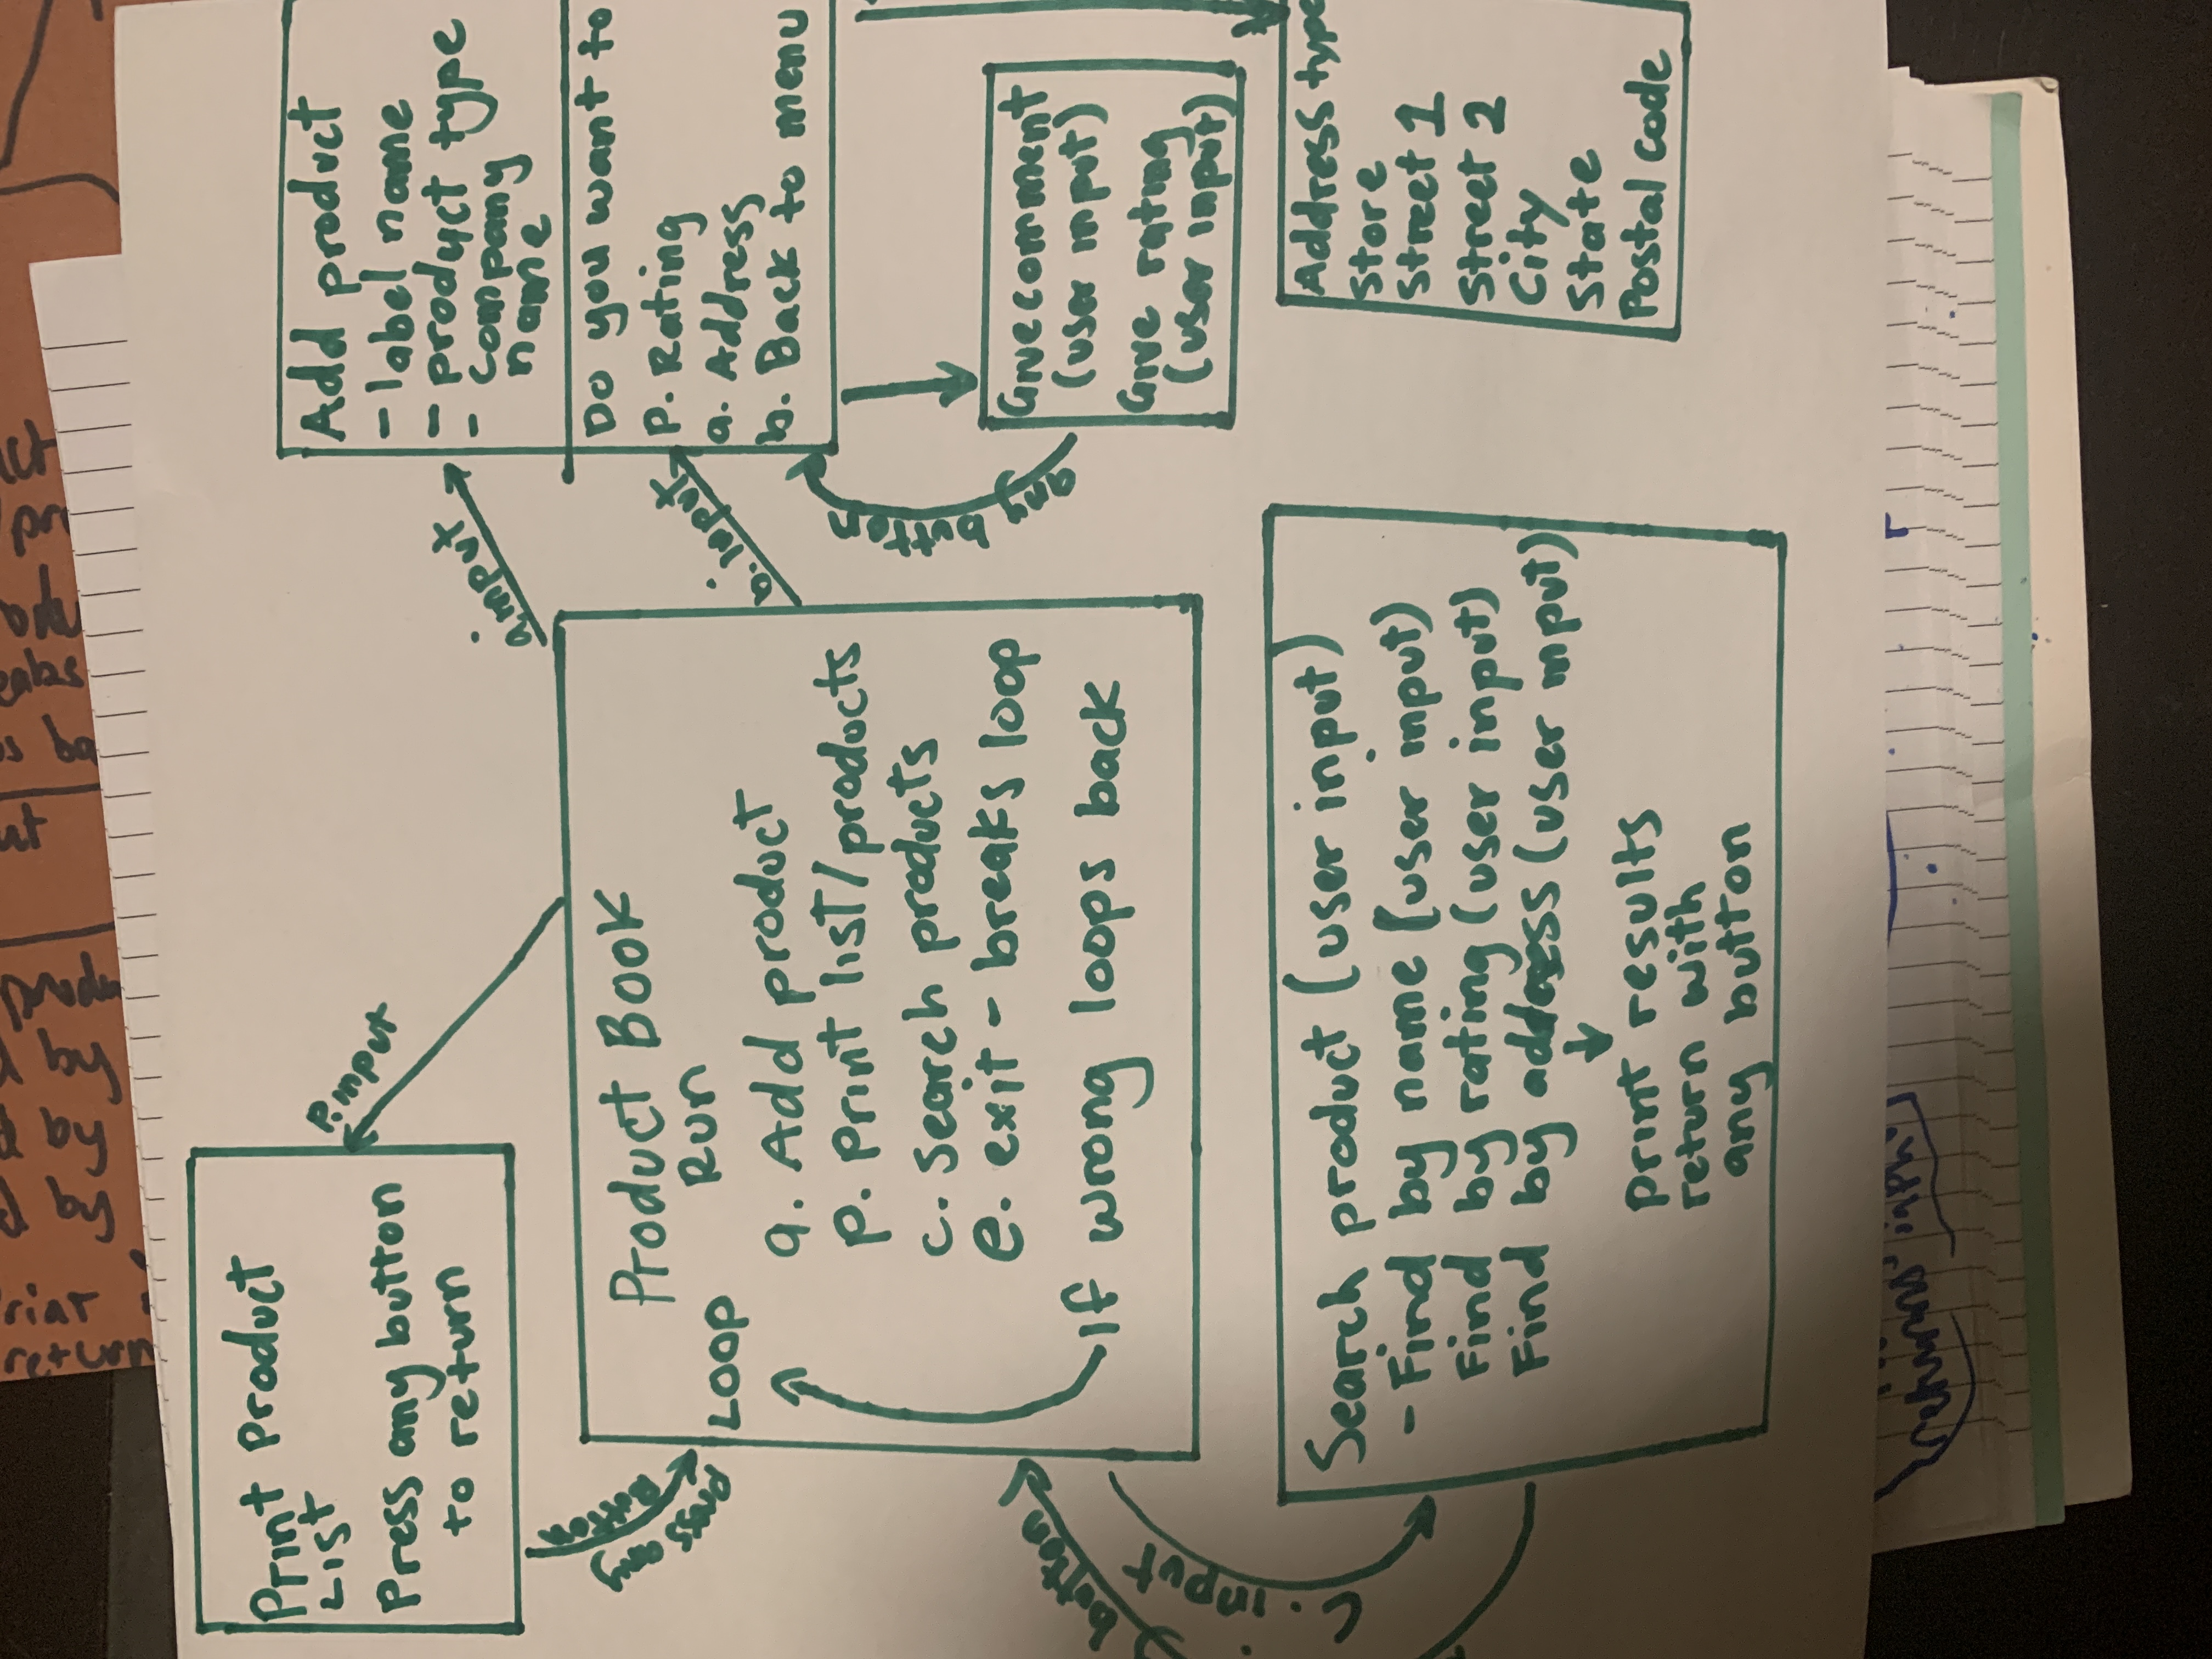 Print Product
List
Press any button
to return
P. input
a. input
Add product
- label name
- product type
- company
name
Do you want to
P. Rating
a. Address
b. Back to menu
b. input
press any
button
Product Book
Run
LOOP
a. Add product
p. Print list/products
c. Search products
e. exit - breaks loop
If wrong loops back
button
c. input
any button
Give comment
(user input)
Give rating
(user input)
Search product (user input)
- Find by name (user input)
Find by rating (user input)
Find by address (user input)
print results
return with
any button
Address type
Store
Street 1
Street 2
City
State
Postal code
returns
by
by
by